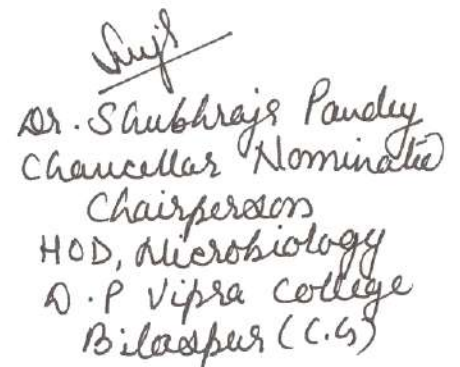 Dr. Shubhraje Pandey
Chancellor Nominated
Chairperson
HOD, Microbiology
D.P Vipra College
Bilaspur (C.G)